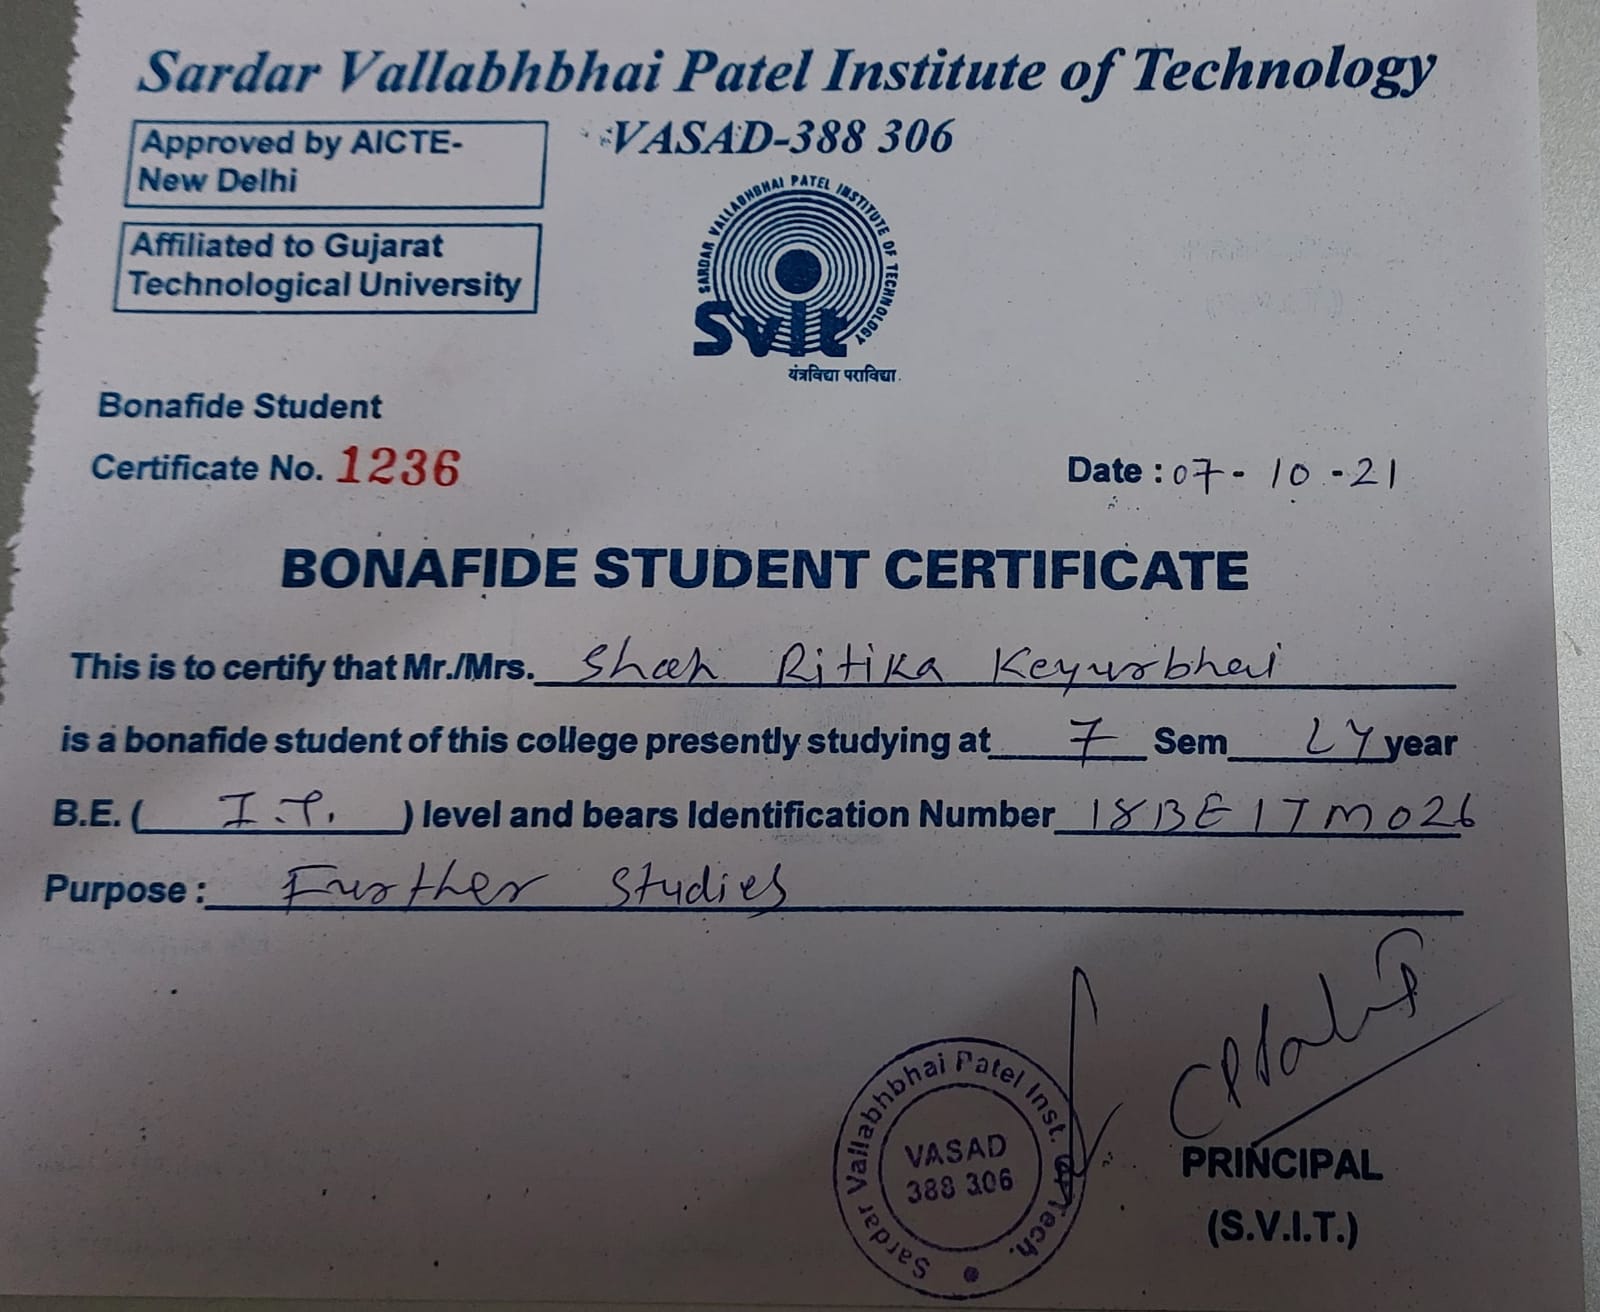 Sardar Vallabhbhai Patel Institute of Technology
VASAD-388 306
Approved by AICTE-
New Delhi
Affiliated to Gujarat
Technological University
SARDAR VALLABHBHAI PATEL INSTITUTE OF TECHNOLOGY
SVIT
यंत्रविद्या पराविद्या
Bonafide Student
Certificate No. 1236
Date : 07-10-21
BONAFIDE STUDENT CERTIFICATE
This is to certify that Mr./Mrs. Shah Ritika Keyurbhai
is a bonafide student of this college presently studying at 7 Sem LY year
B.E. ( I.T. ) level and bears Identification Number 18BEITM026
Purpose : Further Studies
Sardar Vallabhbhai Patel Inst. of Tech.
VASAD
388 306
PRINCIPAL
(S.V.I.T.)